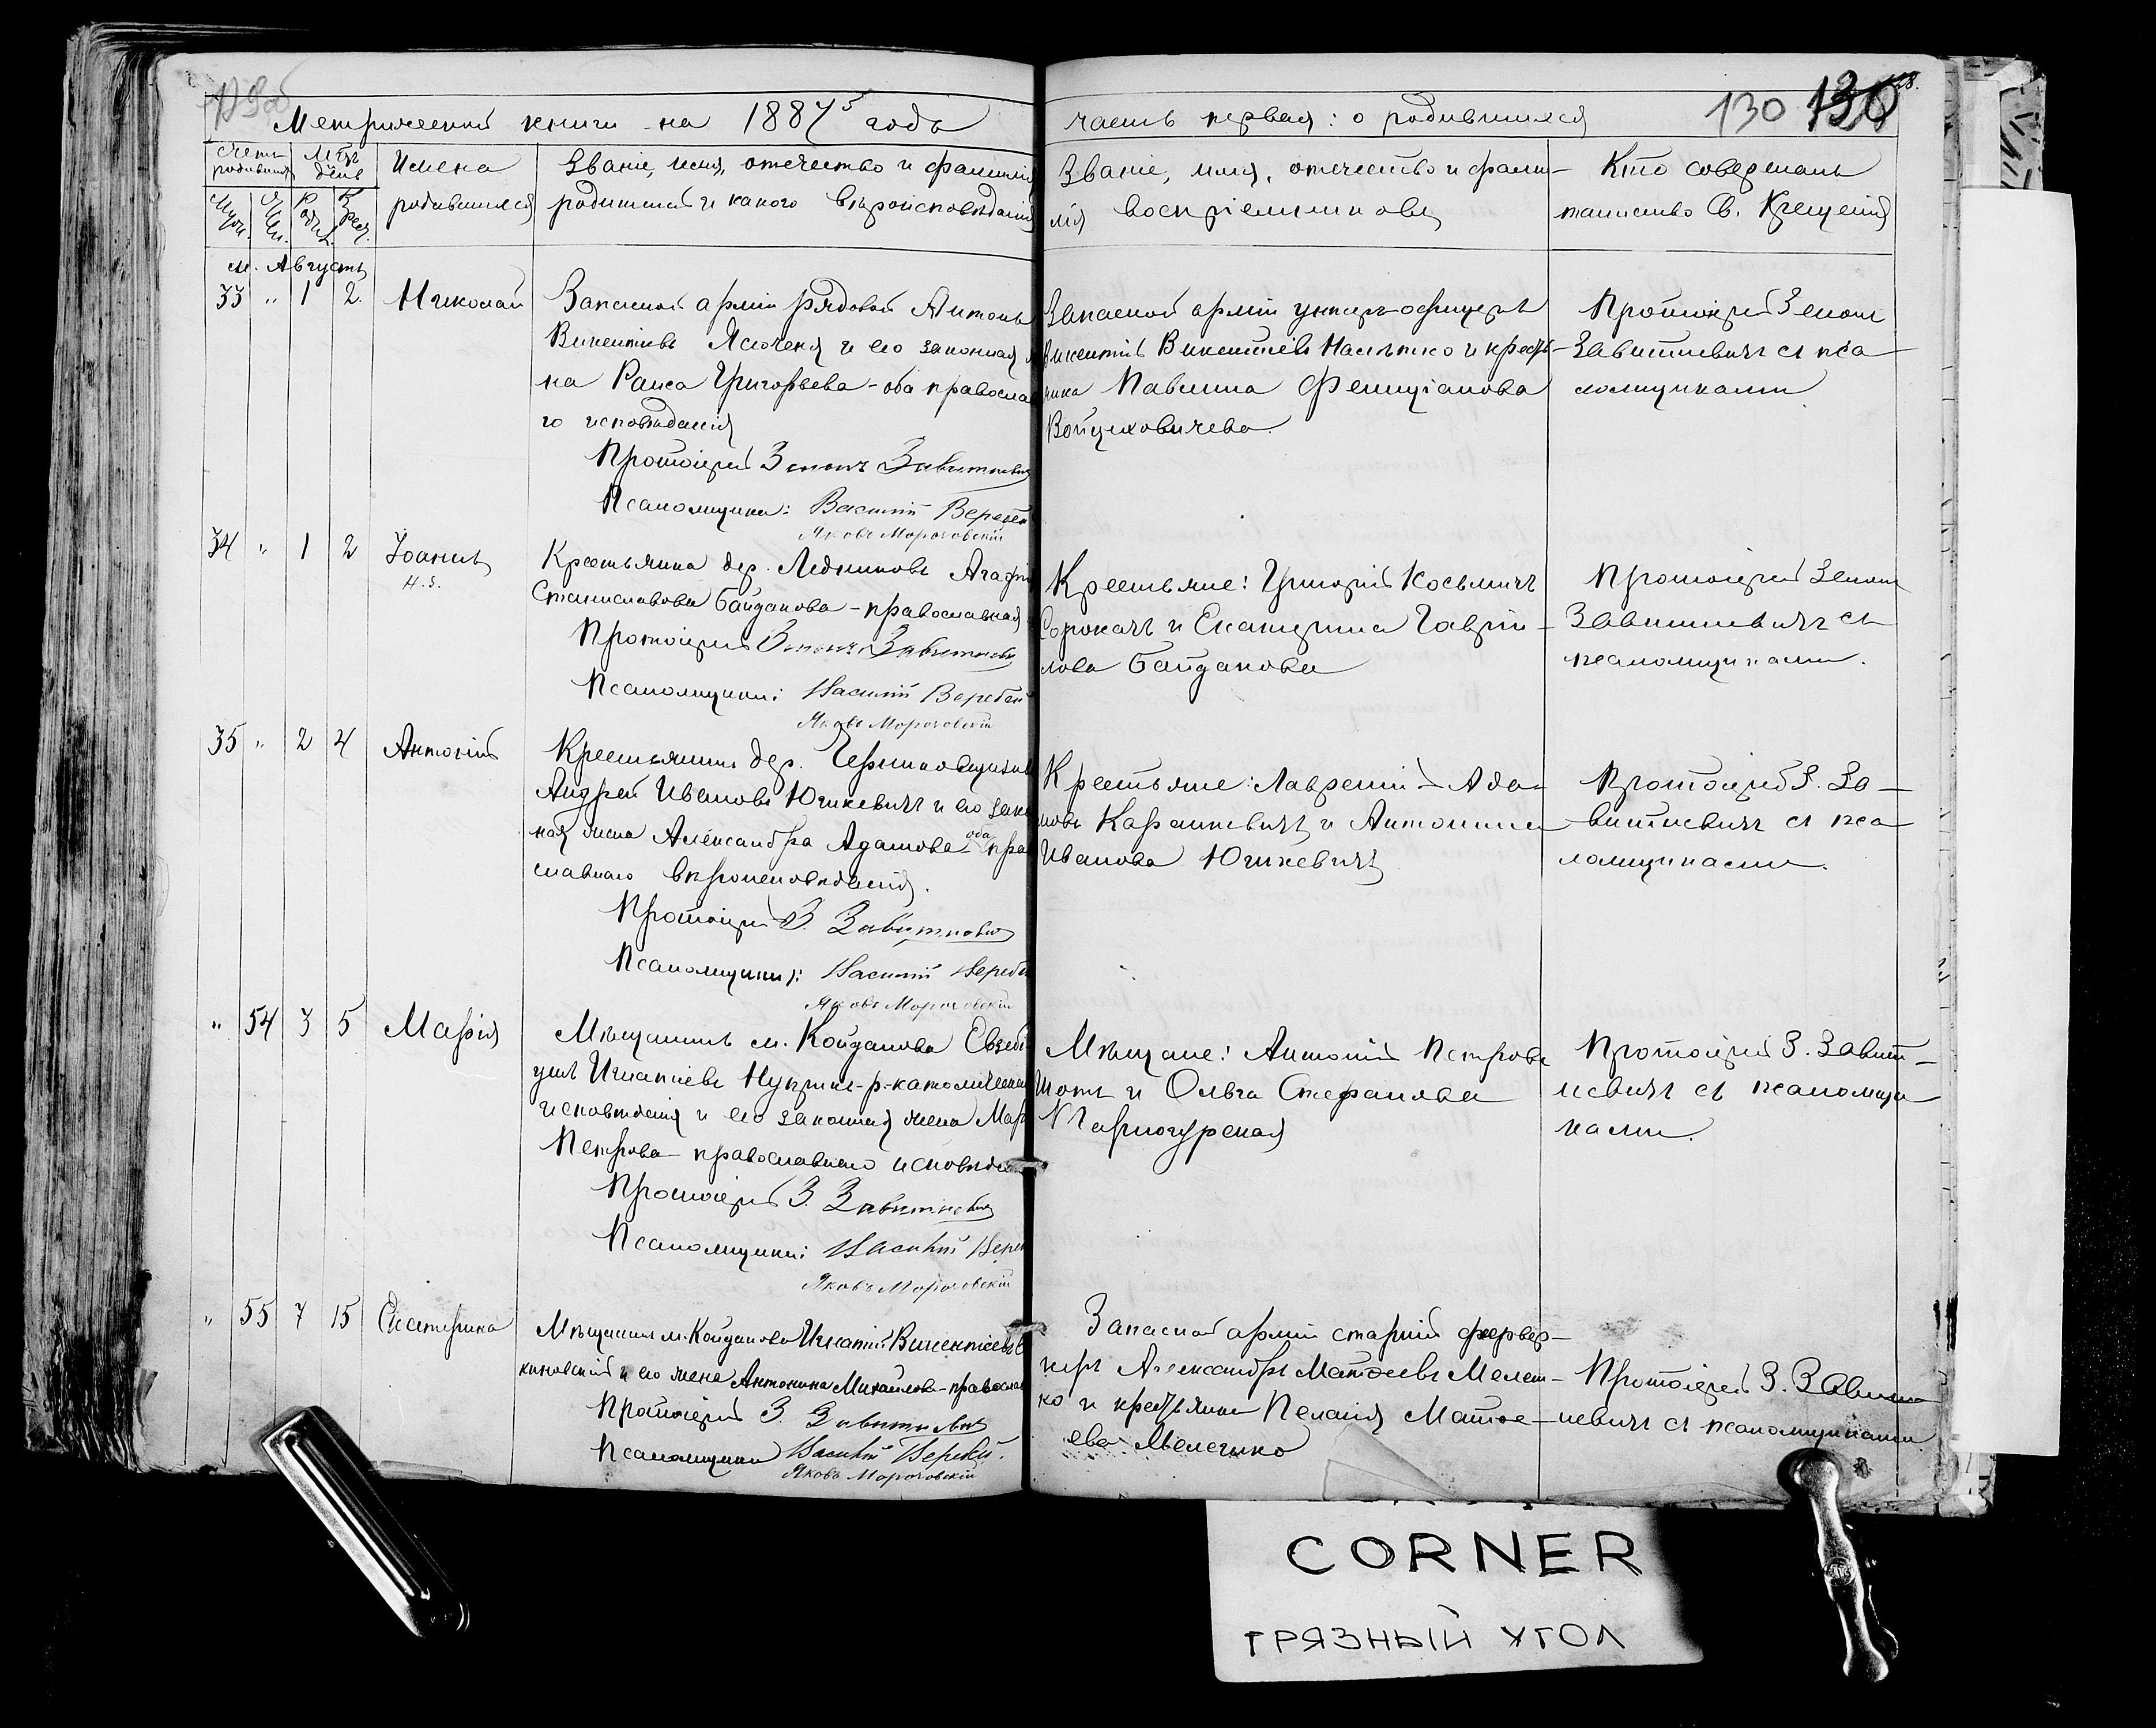 Метрической книги на 1887 года
часть первая: о родившихся
130
Счетъ родивших.
Мѣс. день
Имена родившихся
Званіе, имя, отечество и фамилія
родителей и какого вѣроисповѣданія
Званіе, имя, отечество и фами-
лія воспріемниковъ
Кто совершалъ
таинство Св. Крещенія
м. Августъ
33 " 1 2. Николай
Запасной арміи рядовой Антонъ
Викентіевъ и его законная
на Раиса Григорьева - оба православ
го исповѣданія
Протоіерей Зенонъ Завитневич
Псаломщики: Василій Веребей
Яковъ Морочовскій
Запасной арміи унтеръ-офицеръ
Викентій Викентіевъ и кресть-
янка Павлина
Войцеховичева.
Протоіерей Зенонъ
Завитневичъ съ пса-
ломщиками.
34 " 1 2 Іоаннъ
н. з.
Крестьянка дер. Агафія
Станиславова Байдакова - православная
Протоіерей Зенонъ Завитневи
Псаломщики: Василій Веребей
Яковъ Морочовскій
Крестьяне: Григорій Косьминъ
Сорокачъ и Екатерина Гаврі-
лова Байдакова
Протоіерей Зенонъ
Завитневичъ съ
псаломщиками.
35 " 2 4 Антоній
Крестьянинъ дер.
Андрей Ивановъ Юшкевичъ и его закон
ная жена Александра Адамова оба пра
славнаго вѣроисповѣданія.
Протоіерей З. Завитневич
Псаломщики: Василій Веребе
Яковъ Морочовскій
Крестьяне: Лаврентій Ада-
мовъ Каранкевичъ и Антонина
Иванова Юшкевичъ
Протоіерей З. За-
витневичъ съ пса-
ломщиками.
" 54 3 5 Марія
Мѣщанинъ м. Койданова
Игнатіевъ р-католическаго
исповѣданія и его законная жена Мар
Петрова - православнаго исповѣдан
Протоіерей З. Завитневич
Псаломщики: Василій Вере
Яковъ Морочовскій
Мѣщане: Антоній Петровъ
и Ольга Стефанова
Чарногурская
Протоіерей З. Завит-
невичъ съ псаломщи-
ками.
" 55 7 15 Екатерина
Мѣщанинъ м. Койданова Игнатій Викентіевъ
и его жена Антонина Михайлова - православ
Протоіерей З. Завитневич
Псаломщики Василій Веребей.
Яковъ Морочовскій
Запасной арміи старшій фейервер-
керъ Александръ Матѳеевъ Мелеш-
ко и крестьянка Пелагія Матѳе-
ева Мелешко
Протоіерей З. Завит-
невичъ съ псаломщиками
CORNER
ГРЯЗНЫЙ УГОЛ